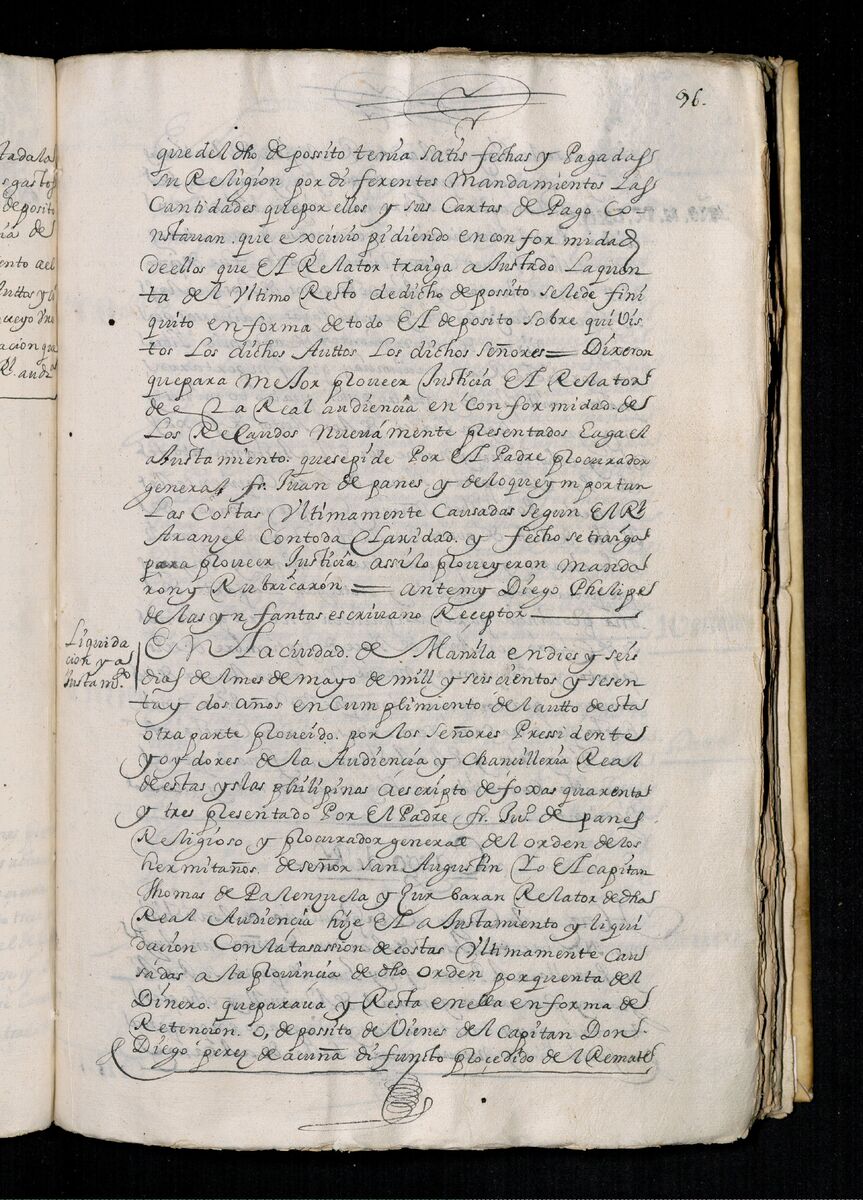 96.
tadala
s gastos
deposito
ia de
ento del
uttos y li
ueyo Dre
acion que
Rl. audia
que del dho depossito tenia satisfechas y Pagadas
su Religion por diferentes Mandamientos Las
Cantidades que por ellos y sus Cartas de Pago Co
nstauan. que excivio pidiendo en conformidad
de ellos que El Relator traiga aJustado La quen
ta del Vltimo Resto de dicho depossito se le de fini
quito en forma de todo El deposito sobre qui Vis
tos Los dichos Auttos Los dichos Señores = Dixeron
que para Mejor proueer Justicia El Relator
de La Real audiencia en Conformidad. de
Los Recaudos Nueuamente presentados haga el
aJustamiento. que se pide Por El Padre procurador
general fr. Juan de panes y de lo que ymportan
Las Costas Vltimamente Causadas segun El Rl
Aranjel Con toda Claridad. y fecho se traiga
para proueer Justicia assi lo proueyeron manda
ron y Rubricaron = ante my Diego Phelipe
de las ynfantas escriuano Receptor
Liquida
cion y a
Justamto
EN La ciudad. de Manila en dies y seis
dias del mes de mayo de mill y seiscientos y sesen
ta y dos años en Cumplimiento del autto de esta
otra parte proueido. por los Señores Pressidente
y oydores de la Audiencia y Chancilleria Real
de estas yslas philipinas a escripto de foxas quarenta
y tres presentado Por El Padre fr. Juo. de panes
Religioso y procurador general del orden de los
hermitaños. de señor san Augustin Yo El capitan
Thomas de Palenzuela y Zurbaran Relator de dha
Real Audiencia hije El aJustamiento y liqui
dacion Con la tasassion de costas Vltimamente Cau
sadas a la prouincia de dho orden por quenta del
Dinero. que paraua y Resta en ella en forma de
Retencion. o, depossito de Vienes del Capitan Don
Diego perez de acuña difunto procedido del Remate